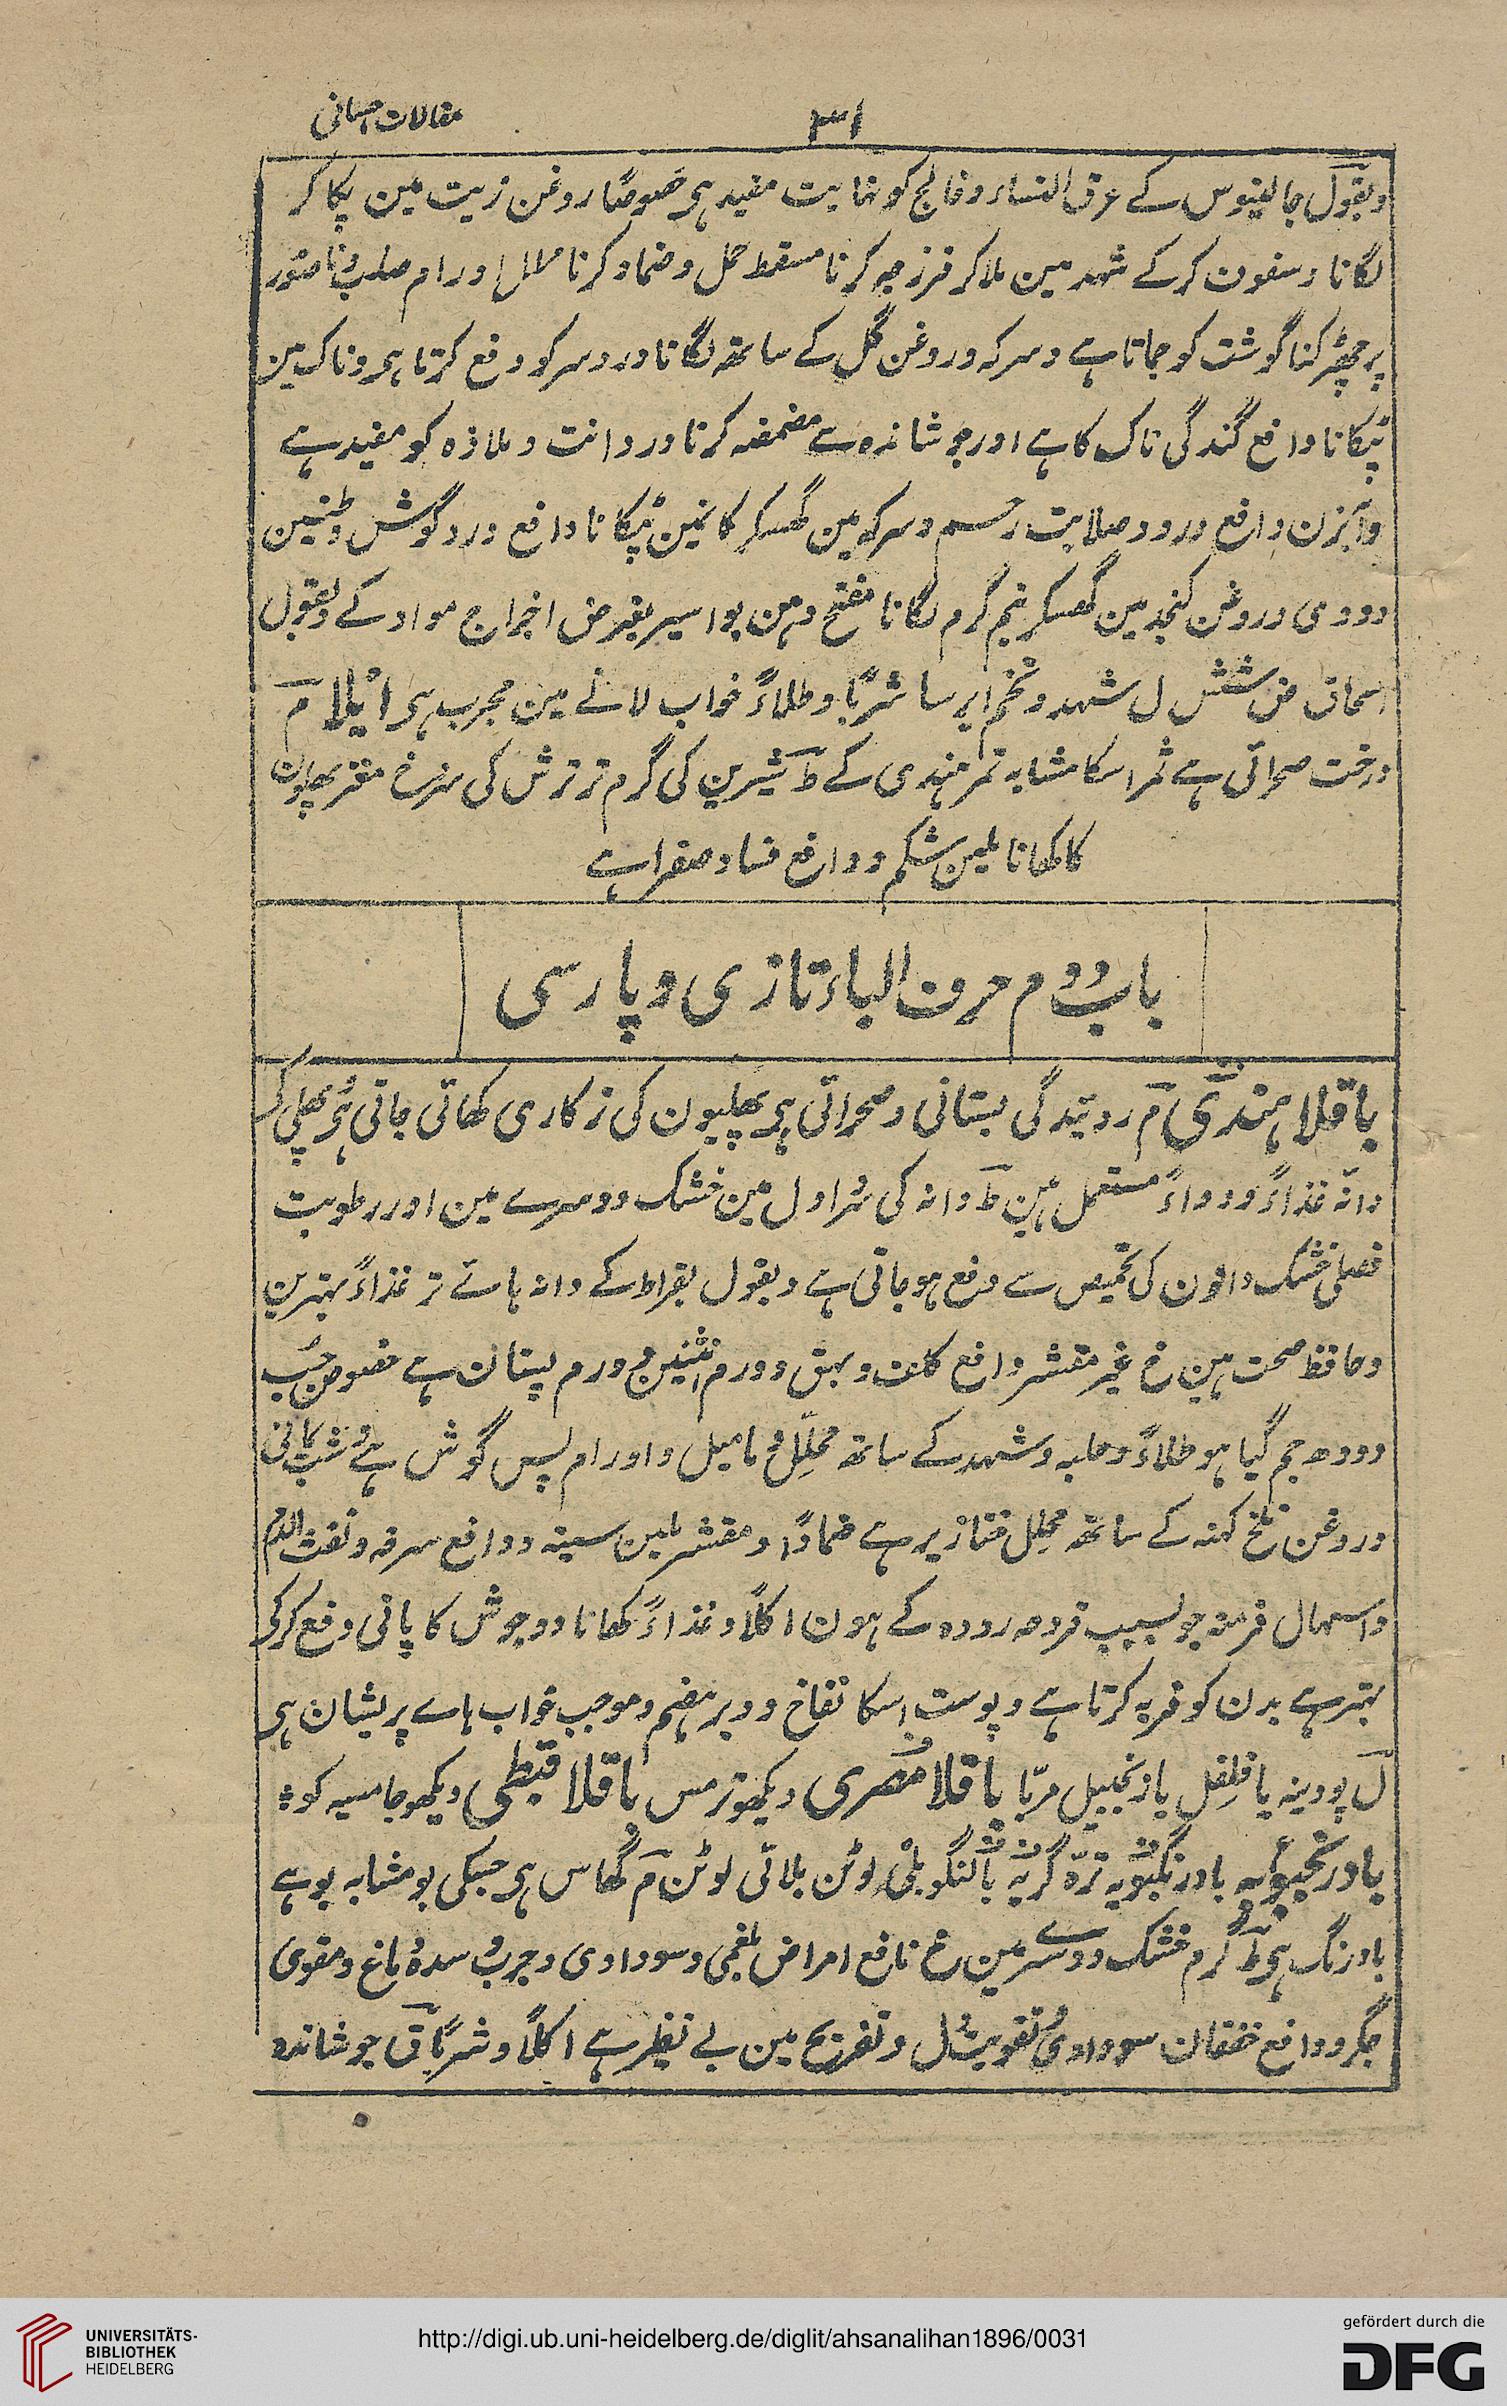 ۳۱ مقالات احسانی
وبقول جالینوس کے عرق النساء وفالج کو نہایت مفید ہی خصوصًا روغن زیت مین پکا کر
لگانا وسفوف کرکے شہد مین ملا کر فرزجہ کرنا مسقط حمل وضماد کرنا محلل اورام صلب وناصور
پر چھڑکنا گوشت کو جماتا ہے وسرکہ وروغن گل کے ساتھ لگانا دردسر کو دفع کرتا ہی وناک مین
ٹپکانا دافع گندگی ناک کا ہے اور جوشاندہ سے مضمضہ کرنا درد دانت وملازہ کو مفید ہے
وآبزن دافع درد وصلابت رحم وسرکہ مین گھسکر کانمین ٹپکانا دافع درد گوش وطنین
دودی وروغن کنجد مین گھسکر نیم گرم لگانا مفتح دہن بواسیر بغرض اخراج مواد کے وبقول
اسحاق ض شش ل شہد وتخم ایرسا شربًا وطلاءً خواب لانے مین مجرب ہی ایٔلا م
درخت صحرائی ہے ثمر اسکا مشابہ تمر ہندی کے ط شیرین کی گرم تر ترش کی سرد خ مغز پھلیون
کا کھانا ملین شکم ودافع فساد صفرا ہے
باب دوم حرف الباء تازی و پارسی
باقلا ہندی م روئیدگی بستانی وصحرائی ہی پھلیون کی ترکاری کھائی جاتی ہی وپھلی کے
دانہ غذاءً ودواءً مستعمل ہین ط دانہ کی سرد اول مین خشک دوسرے مین اور رطوبت
فصلی خشک دانون کی تحمیص سے دفع ہو جاتی ہے وبقول بقراط کے دانہ ہائے تر غذاءً بہترین
وحافظ صحت ہین خ غیر مقشر دافع کلف وبہق وورم انثیین وورم پستان ہے خصوص جب
دودھ جم گیا ہو طلاءً وحلبہ وشہد کے ساتھ محلل دمامیل واورام پس گوش ہے وشب یمانی
وروغن تلخ کہنہ کے ساتھ محلل خنازیر ہے ضمادًا ومقشر ملین سینہ ودافع سرفہ ونفث الدم
واسہال مزمنہ جو بسبب قروحہ رودہ کے ہون اکلًا وغذاءً کھانا دوجوش کا پانی دفع کرکے
بہتر ہے بدن کو فربہ کرتا ہے وپوست اسکا نفاخ ودیر ہضم وموجب خواب ہاے پریشان ہی
ل پودینہ یا فلفل یا زنجبیل مربّا باقلا مصری دیکھو ترمس باقلا قبطی دیکھو جامسہ کو
بادرنجبویہ بادرنگبویہ ترّہ گربہ بالنگو بلی لوٹن بلائی لوٹن م گھاس ہی جسکی بو مشابہ بوے
بادرنگ ہی ط گرم خشک دوسرے مین خ نافع امراض بلغمی وسوداوی وجرب وسدہ دماغ ومقوی
جگر ودافع خفقان سوداوی وتقویت دل وتفریح مین بے نظیر ہے اکلًا وشربًا ق جوشاندہ
UNIVERSITÄTS-
BIBLIOTHEK
HEIDELBERG
http://digi.ub.uni-heidelberg.de/diglit/ahsanalihan1896/0031
gefördert durch die
DFG